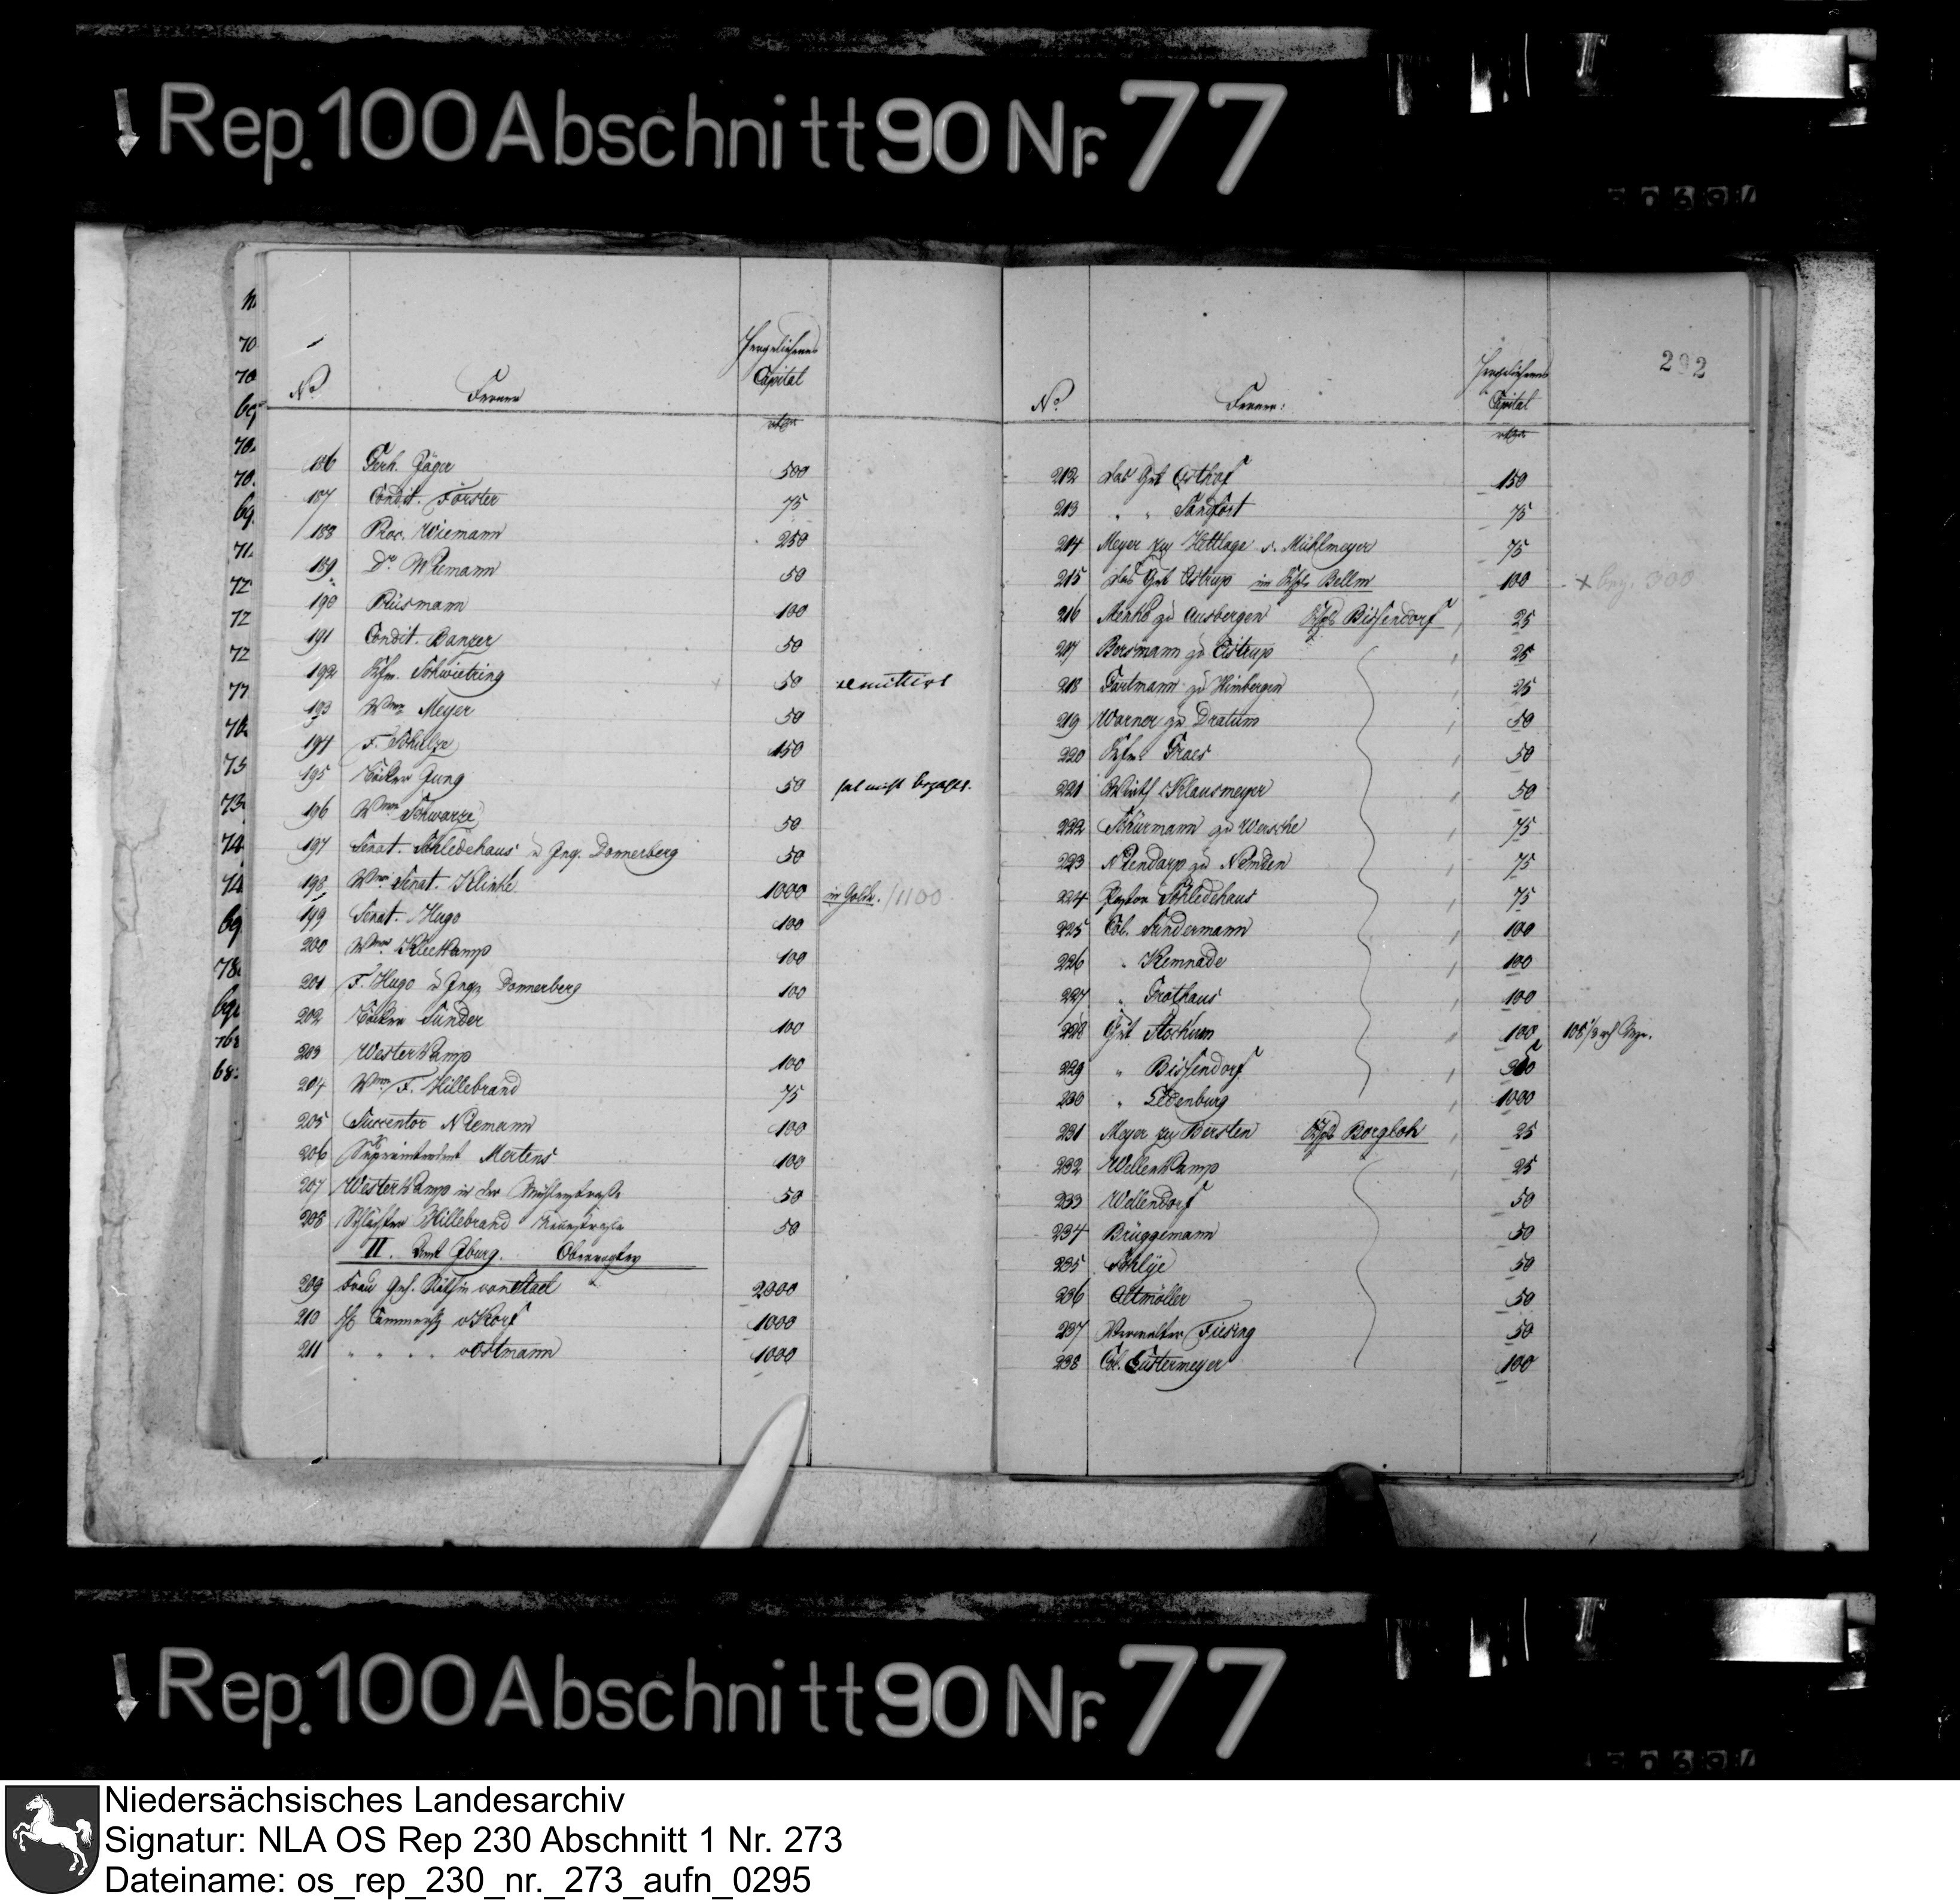 Rep. 100 Abschnitt 90 Nr. 77
No. Ferner Hergeliehenes Capital
rthlr
186 Ferh. Jäger 500
187 Condit. Förster 75
188 Proc. Wiemann 250
189 Dr. Niemann 50
190 Rüsmann 100
191 Condit. Banzer 50
192 Kfm. Schwietring 50 remittirt
193 Wwe Meyer 50
194 F. Schulze 150
195 Bäcker Jung 50 hat nicht bezahlt.
196 Wwe Schwarze 50
197 Senat. Schledehaus u Jng. Donnerberg 50
198 Wwe Senat. Klinke 1000 in Golde. /1100
199 Senat. Hugo 100
200 Wwe Kleekamp 100
201 F. Hugo u Jngr Donnerberg 100
202 Bäcker Sunder 100
203 Westerkamp 100
204 Wwe F. Hillebrand 75
205 Succentor Niemann 100
206 Superintendent Mertens 100
207 Westerkamp in der Mühlenstraße 50
208 Schlächter Hillebrand Neuestraße 50
II. Amt Jburg. Obervogtey
209 Frau Geh. Räthin von Stael 2000
210 H Cammerh v Korf 1000
211 " " " " v Ostmann 1000
292
No. Ferner: Hergeliehenes Capital
rthlr
212 das Gut Osthof 150
213 " " Sandfort 75
214 Meyer zu Hettlage s. Mühlmeyer 75
215 das Gut Astrup im Kspl Bellm 100 x bez. 300
216 Menke zu Ausbergen Kspl Bissendorf 25
217 Borsmann zu Eistrup 25
218 Fartmann zu Himbergen 25
219 Warner zu Dratum 50
220 Kfm. Fraes 50
221 Wirth Klausmeyer 50
222 Schürmann zu Wersche 75
223 Niendarp zu Nemden 75
224 Pastor Schledehaus 75
225 Col. Sundermann 100
226 " Kemnade 100
227 " Frothaus 100
228 Gut Stockum 100
229 " Bissendorf
230 " Ledenburg 1000
231 Meyer zu Bersten Kspl Borgloh 25
232 Wellenkamp 25
233 Wellendorf 50
234 Brüggemann 50
235 Schlije 50
236 Altmöller 50
237 Verwalter Fiesing 50
238 Col. Eustermeyer 100
Rep. 100 Abschnitt 90 Nr. 77
Niedersächsisches Landesarchiv
Signatur: NLA OS Rep 230 Abschnitt 1 Nr. 273
Dateiname: os_rep_230_nr._273_aufn_0295